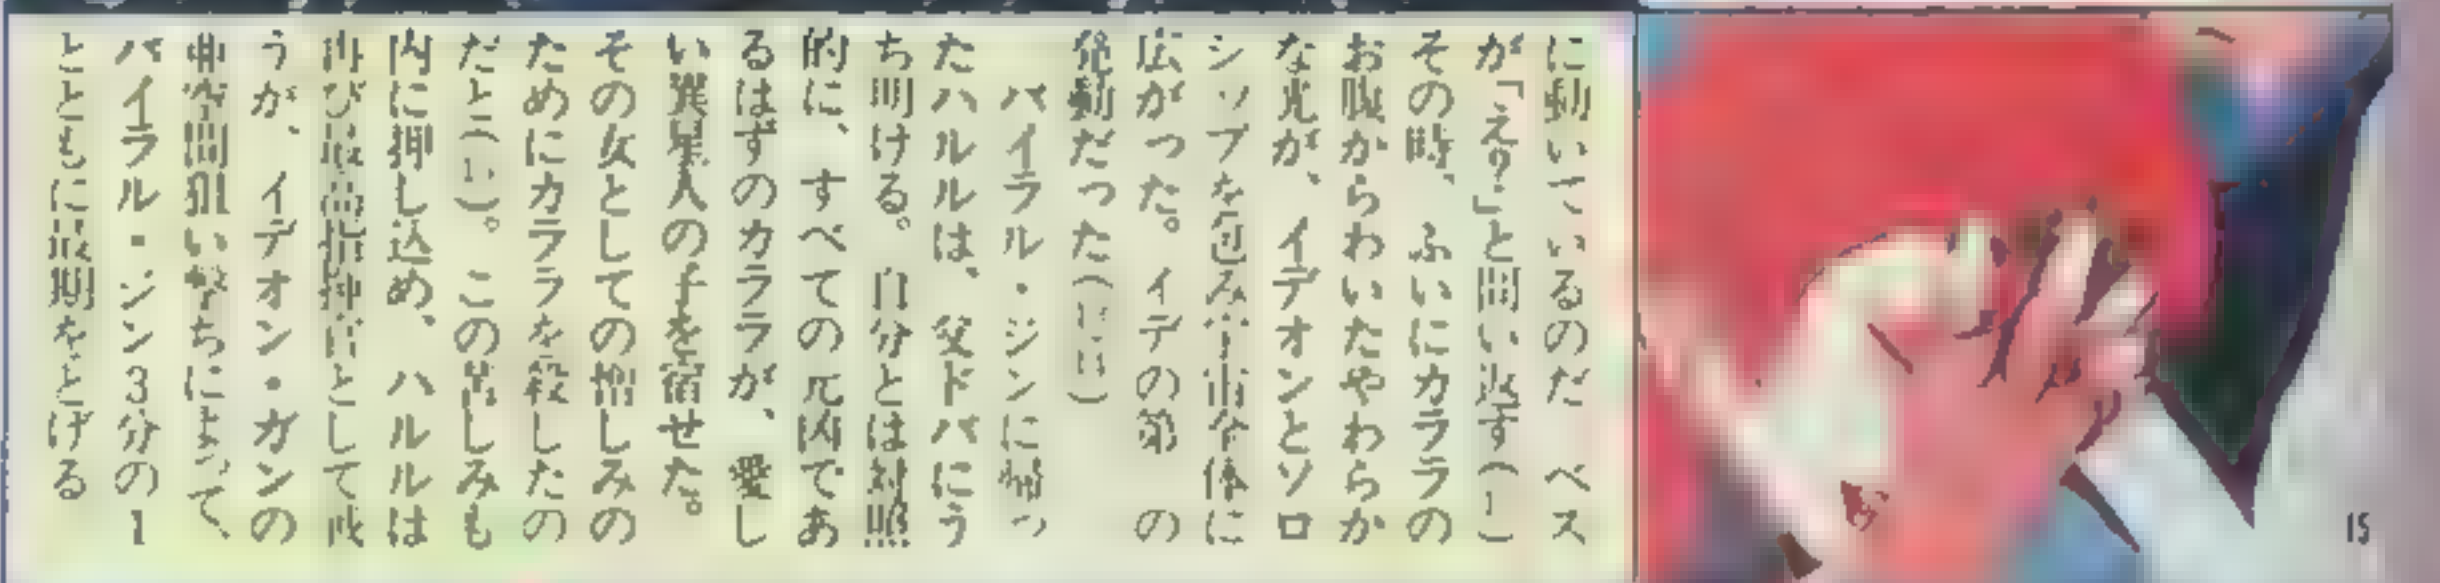 に動いているのだ ベス
が「え?」と問い返す
その時、ふいにカララの
お腹からわいたやわらか
な光が、イデオンとソロ
シップを包み宇宙全体に
広がった。イデの第 の
発動だった
バイラル・ジンに帰っ
たハルルは、父ドバにう
ち明ける。自分とは対照
的に、すべての元凶であ
るはずのカララが、愛し
い異星人の子を宿せた。
その女としての憎しみの
ためにカララを殺したの
だと 。この苦しみも
内に押し込め、ハルルは
再び最高指揮官として戦
うが、イデオン・ガンの
亜空間狙い撃ちによって、
バイラル・ジン3分の1
とともに最期をとげる
15